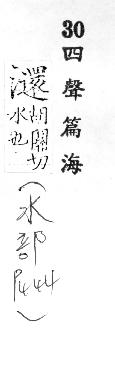 30 四聲篇海
胡關切
水也
(水部 P444)